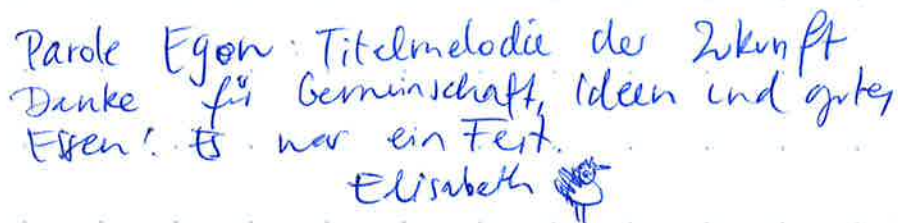 Parole Egon: Titelmelodie der Zukunft
Danke für Gemeinschaft, Ideen und gutes
Essen! Es war ein Fest.
Elisabeth